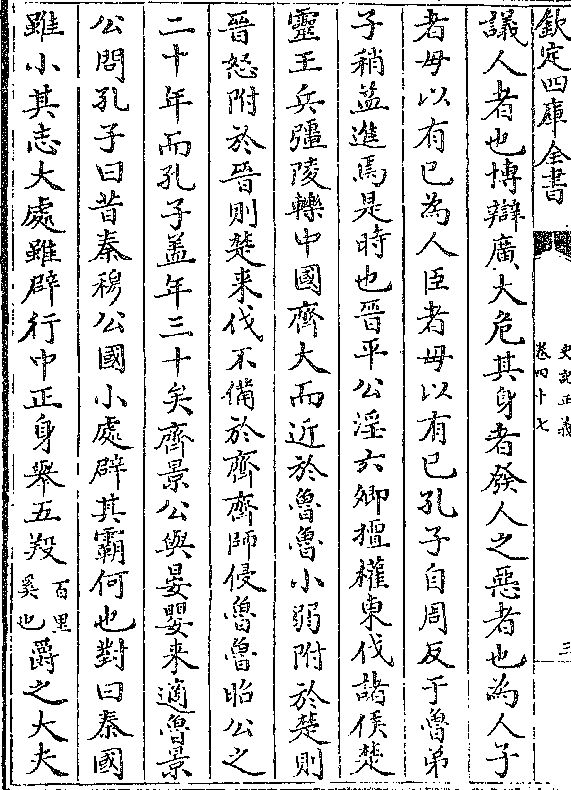 欽定四庫全書
史記正義
卷四十七
三
議人者也博辯廣大危其身者發人之惡者也為人子
者毋以有已為人臣者毋以有已孔子自周反于魯弟
子稍益進焉是時也晉平公淫六卿擅權東伐諸侯楚
靈王兵彊陵轢中國齊大而近於魯魯小弱附於楚則
晉怒附於晉則楚来伐不備於齊齊師侵魯魯昭公之
二十年而孔子盖年三十矣齊景公與晏嬰来適魯景
公問孔子曰昔秦穆公國小處辟其霸何也對曰秦國
雖小其志大處雖辟行中正身舉五羖百里奚也爵之大夫